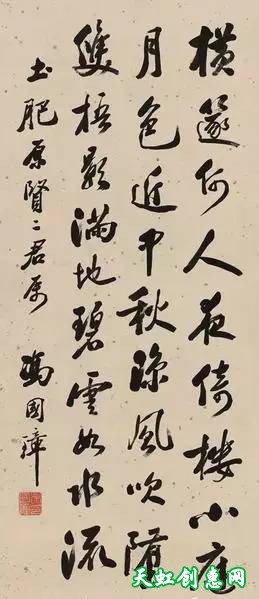 横篴何人夜倚楼小庭
月色近中秋凉风吹堕
双梧影满地碧云如水流
土肥原贤二君属
冯国璋
天虹创惠网